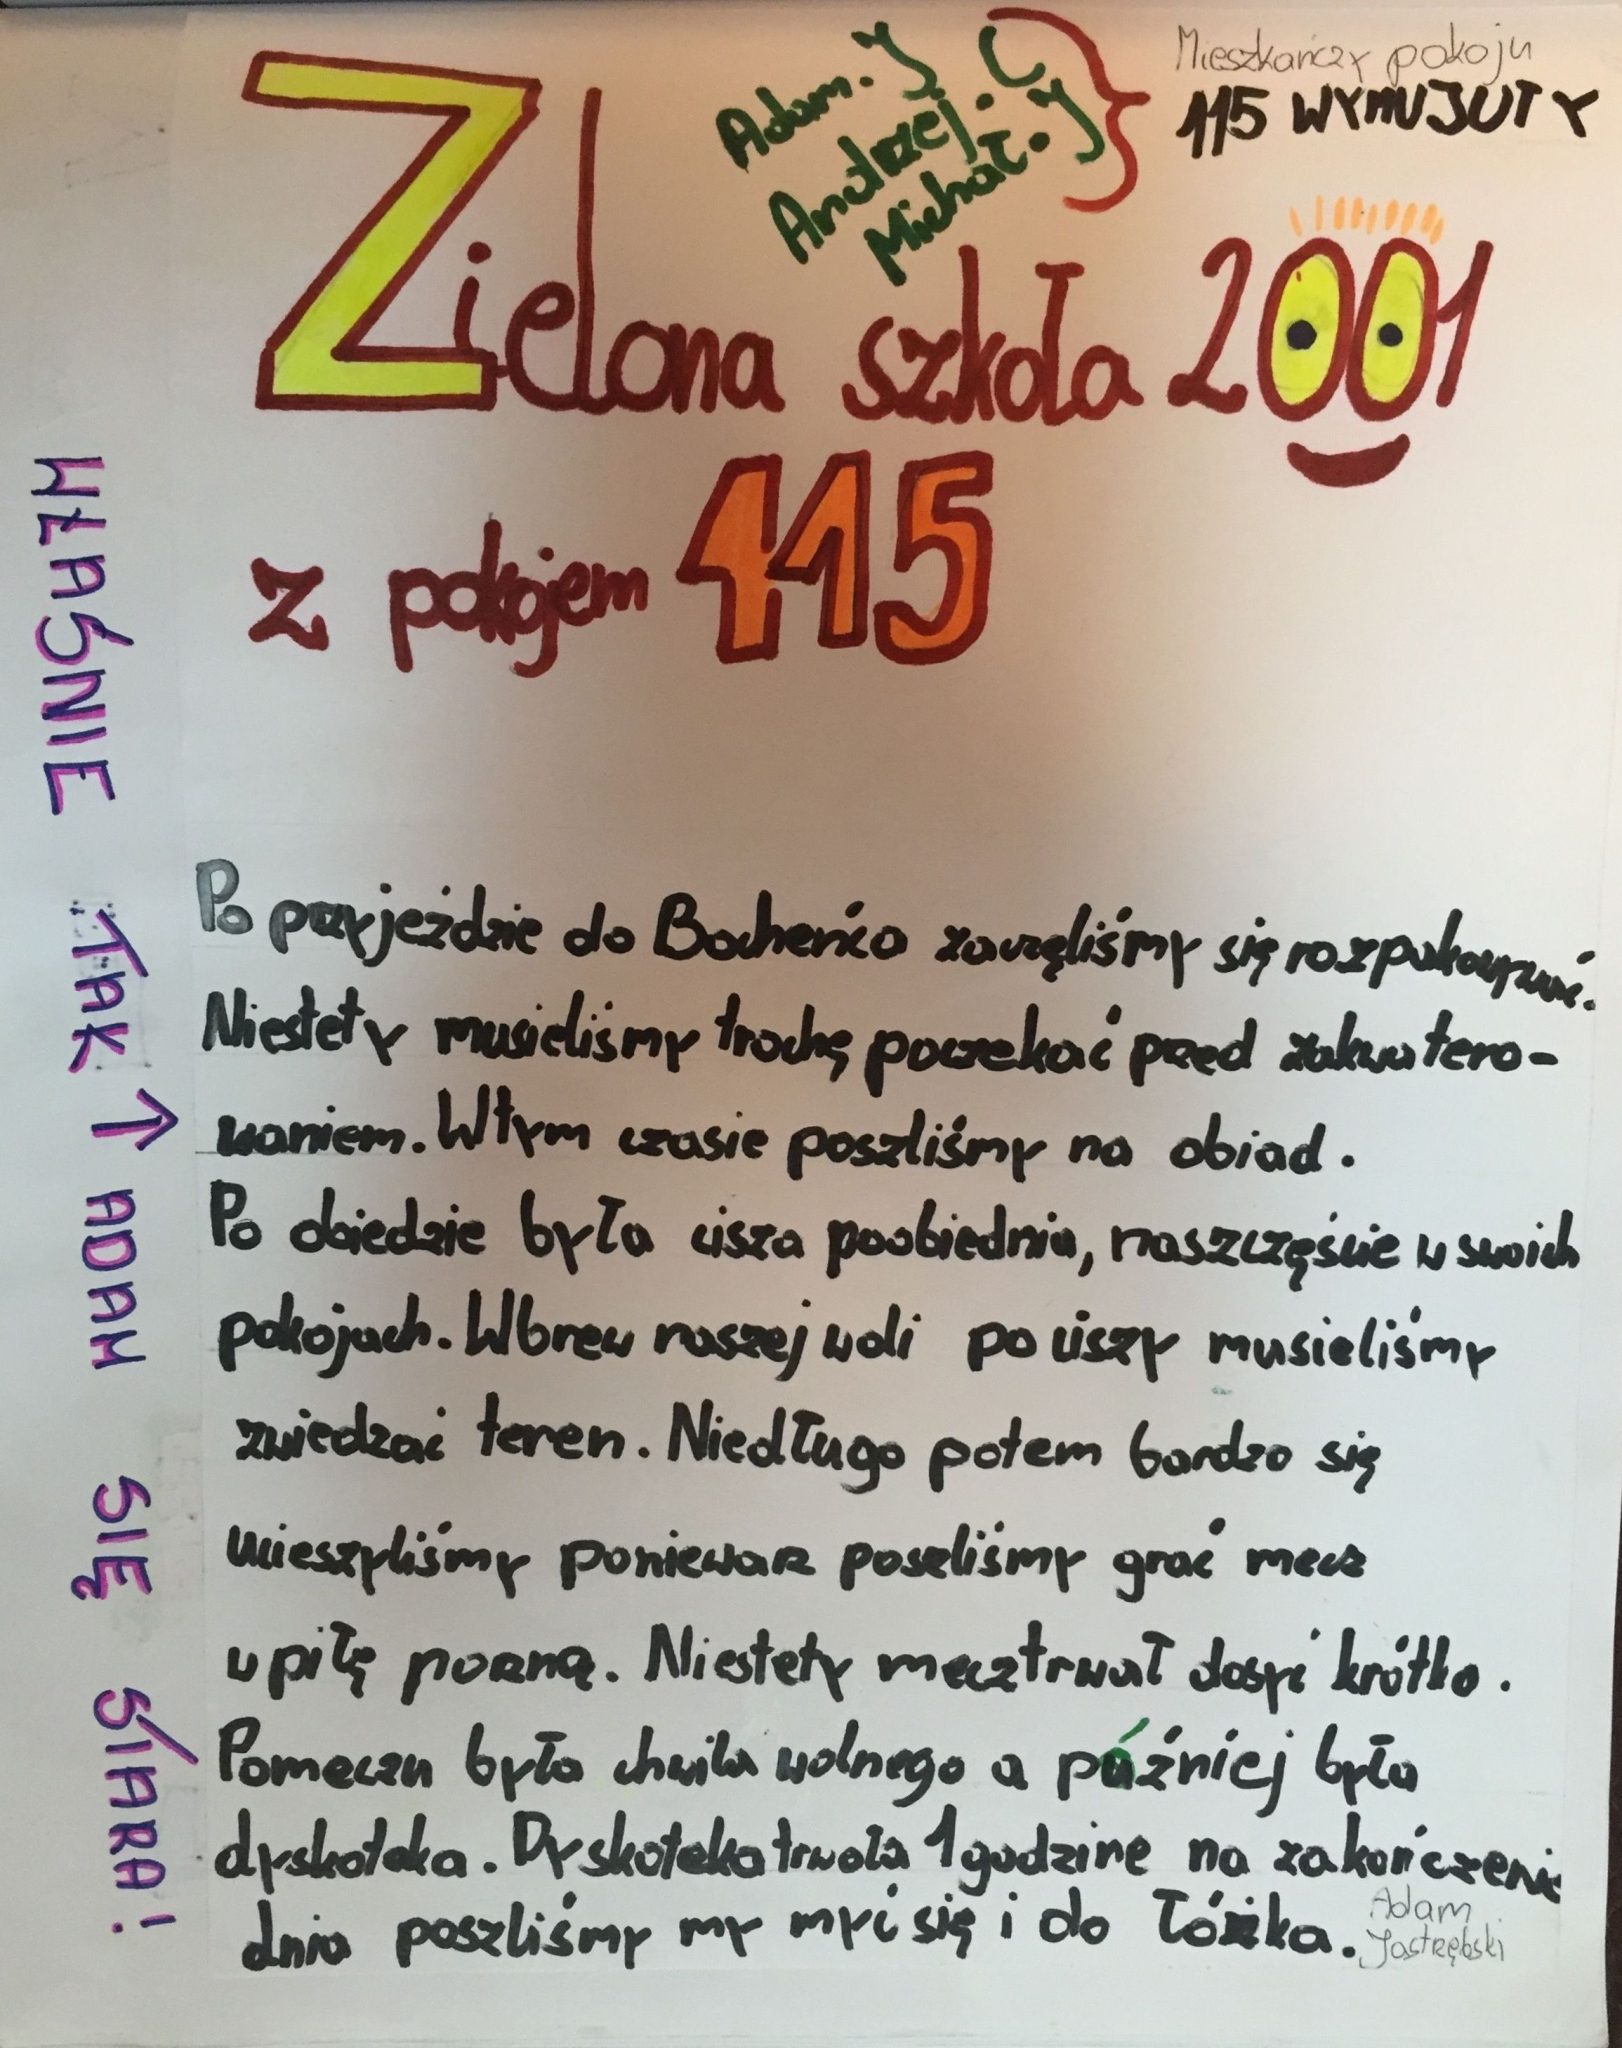 Mieszkańczy pokoju
115 WYMUJUTY
Adam. J
Andrzej. C
Michał. J
Zielona szkoła 2001
z pokojem 115
Po przyjeździe do Bocheńco zaczęliśmy się rozpakowywać.
Niestety musieliśmy trochę poczekać przed zakwatero-
waniem. Wtym czasie poszliśmy na obiad.
Po obiedzie była cisza poobiednia, naszczęście w swoich
pokojach. Wbrew naszej woli po ciszy musieliśmy
zwiedzać teren. Niedługo potem bardzo się
ucieszyliśmy poniewarz poszliśmy grać mecz
w piłę norzną. Niestety mecz trwał dosyć krótko.
Pomeczu była chwila wolnego a púźniej była
dyskoteka. Dyskoteka trwała 1 godzine na zakończenie
dnia poszliśmy my myć się i do łóżka.
Adam
Jastrzębski
WŁAŚNIE TAK ↑ ADAM SIĘ STARA!